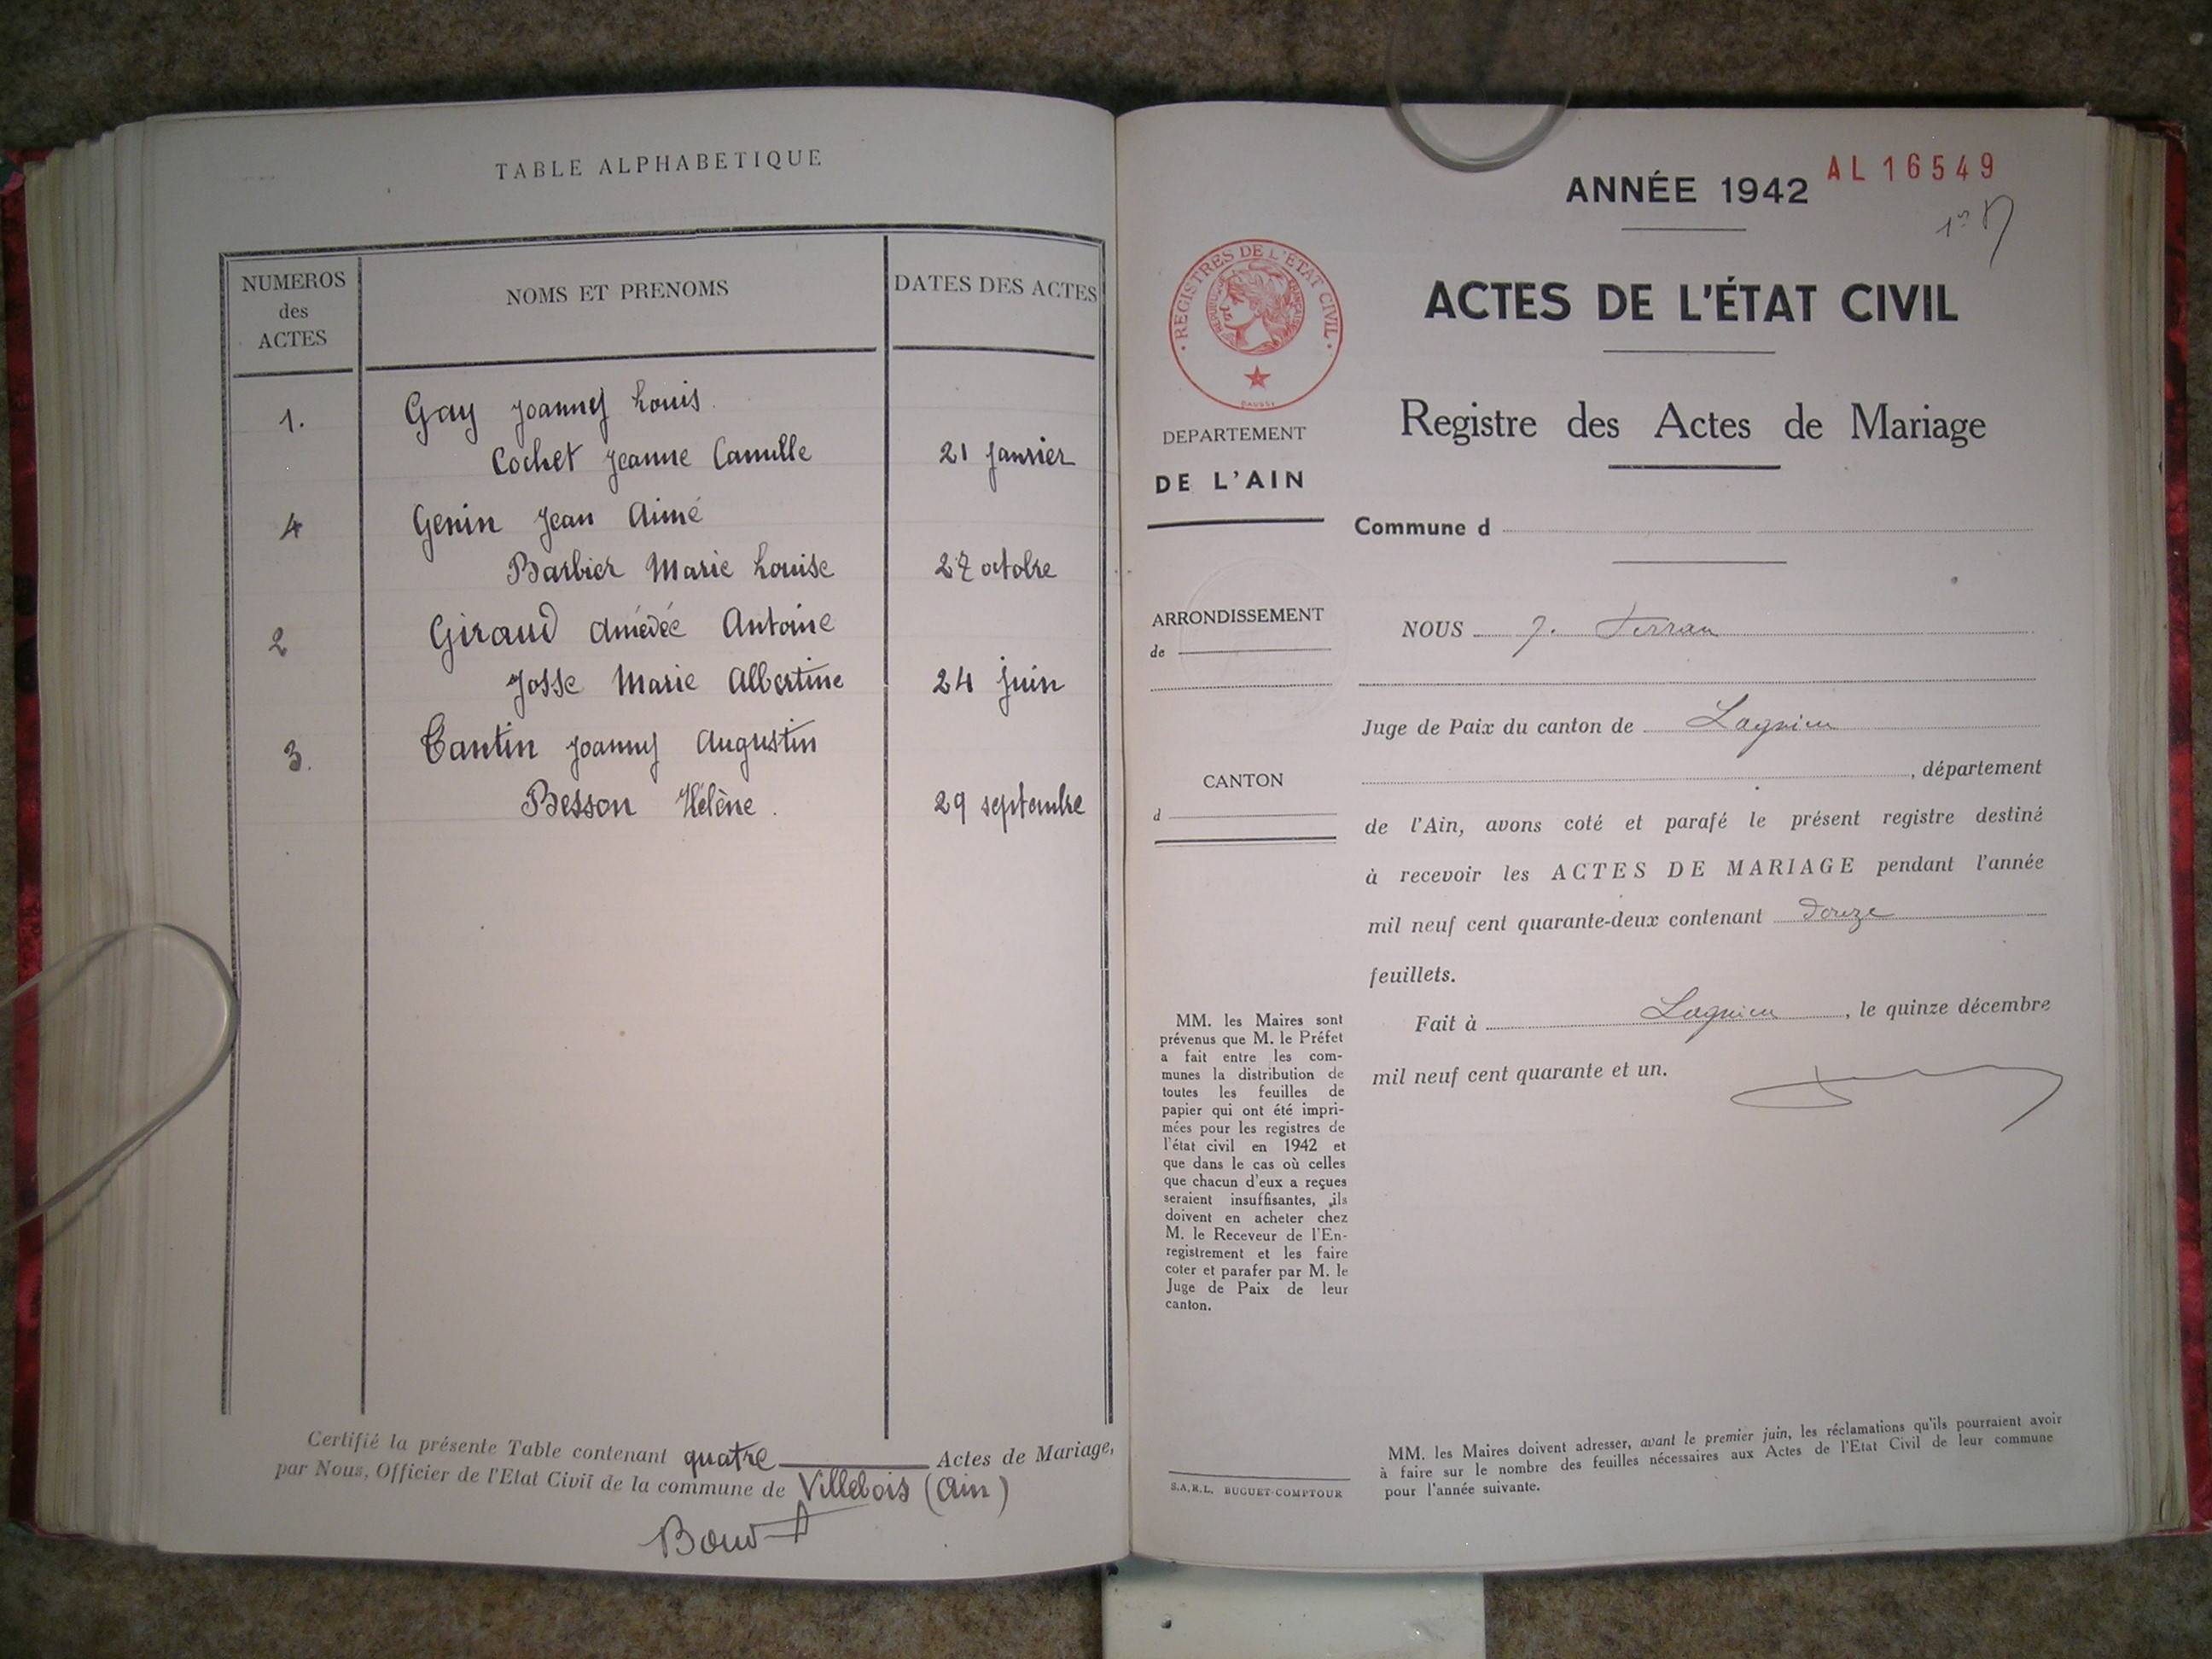 TABLE ALPHABETIQUE
NUMEROS
des
ACTES
NOMS ET PRENOMS
DATES DES ACTES
1. Gay Joanny Louis.
Cochet Jeanne Camille 21 Janvier
4 Genin Jean Aimé
Barbier Marie Louise 27 octobre
2 Giraud Amédée Antoine
Josse Marie Albertine 24 juin
3. Tantin Joanny Augustin
Besson Hélène. 29 septembre
Certifié la présente Table contenant quatre Actes de Mariage,
par Nous, Officier de l'Etat Civil de la commune de Villebois (Ain)
AL 16549
ANNÉE 1942
ACTES DE L'ÉTAT CIVIL
Registre des Actes de Mariage
· REGISTRES DE L'ÉTAT CIVIL ·
RÉPUBLIQUE FRANÇAISE
DEPARTEMENT
DE L'AIN
Commune d
ARRONDISSEMENT
de
CANTON
d
NOUS J. Ferran
Juge de Paix du canton de Lagnieu
, département
de l'Ain, avons coté et parafé le présent registre destiné
à recevoir les ACTES DE MARIAGE pendant l'année
mil neuf cent quarante-deux contenant douze
feuillets.
Fait à Lagnieu, le quinze décembre
mil neuf cent quarante et un.
MM. les Maires sont
prévenus que M. le Préfet
a fait entre les com-
munes la distribution de
toutes les feuilles de
papier qui ont été impri-
mées pour les registres de
l'état civil en 1942 et
que dans le cas où celles
que chacun d'eux a reçues
seraient insuffisantes, ils
doivent en acheter chez
M. le Receveur de l'En-
registrement et les faire
coter et parafer par M. le
Juge de Paix de leur
canton.
S.A.R.L. BUGUET-COMPTOUR
MM. les Maires doivent adresser, avant le premier juin, les réclamations qu'ils pourraient avoir
à faire sur le nombre des feuilles nécessaires aux Actes de l'Etat Civil de leur commune
pour l'année suivante.